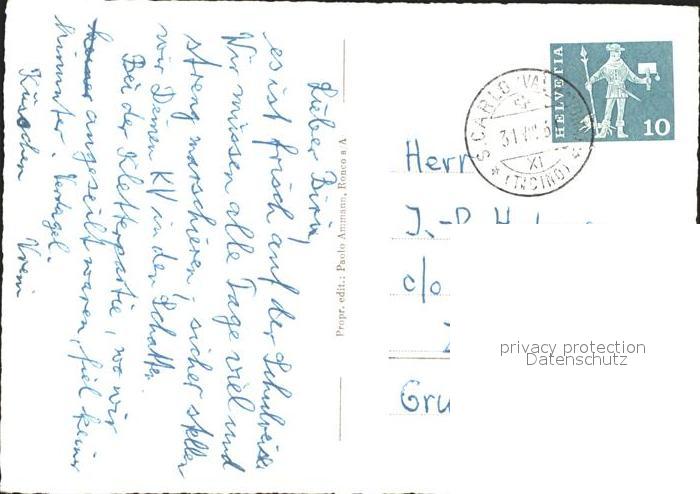 Lieber Birin,
es ist frisch auf der Schulreise
Wir müssen alle Tage viel und
streng marschieren, sicher stellen
wir Damen KV in den Schatten.
Bei der Kletterpartie, wo wir
angeseilt waren, fiel keiner
hinunter.
Küsschen Vreni
Propr. edit.: Paolo Ammann, Ronco s A
HELVETIA
10
S. CARLO (VAL
31
XI
(TICINO)
Herr
J.-P. H
c/o
Gru
privacy protection
Datenschutz